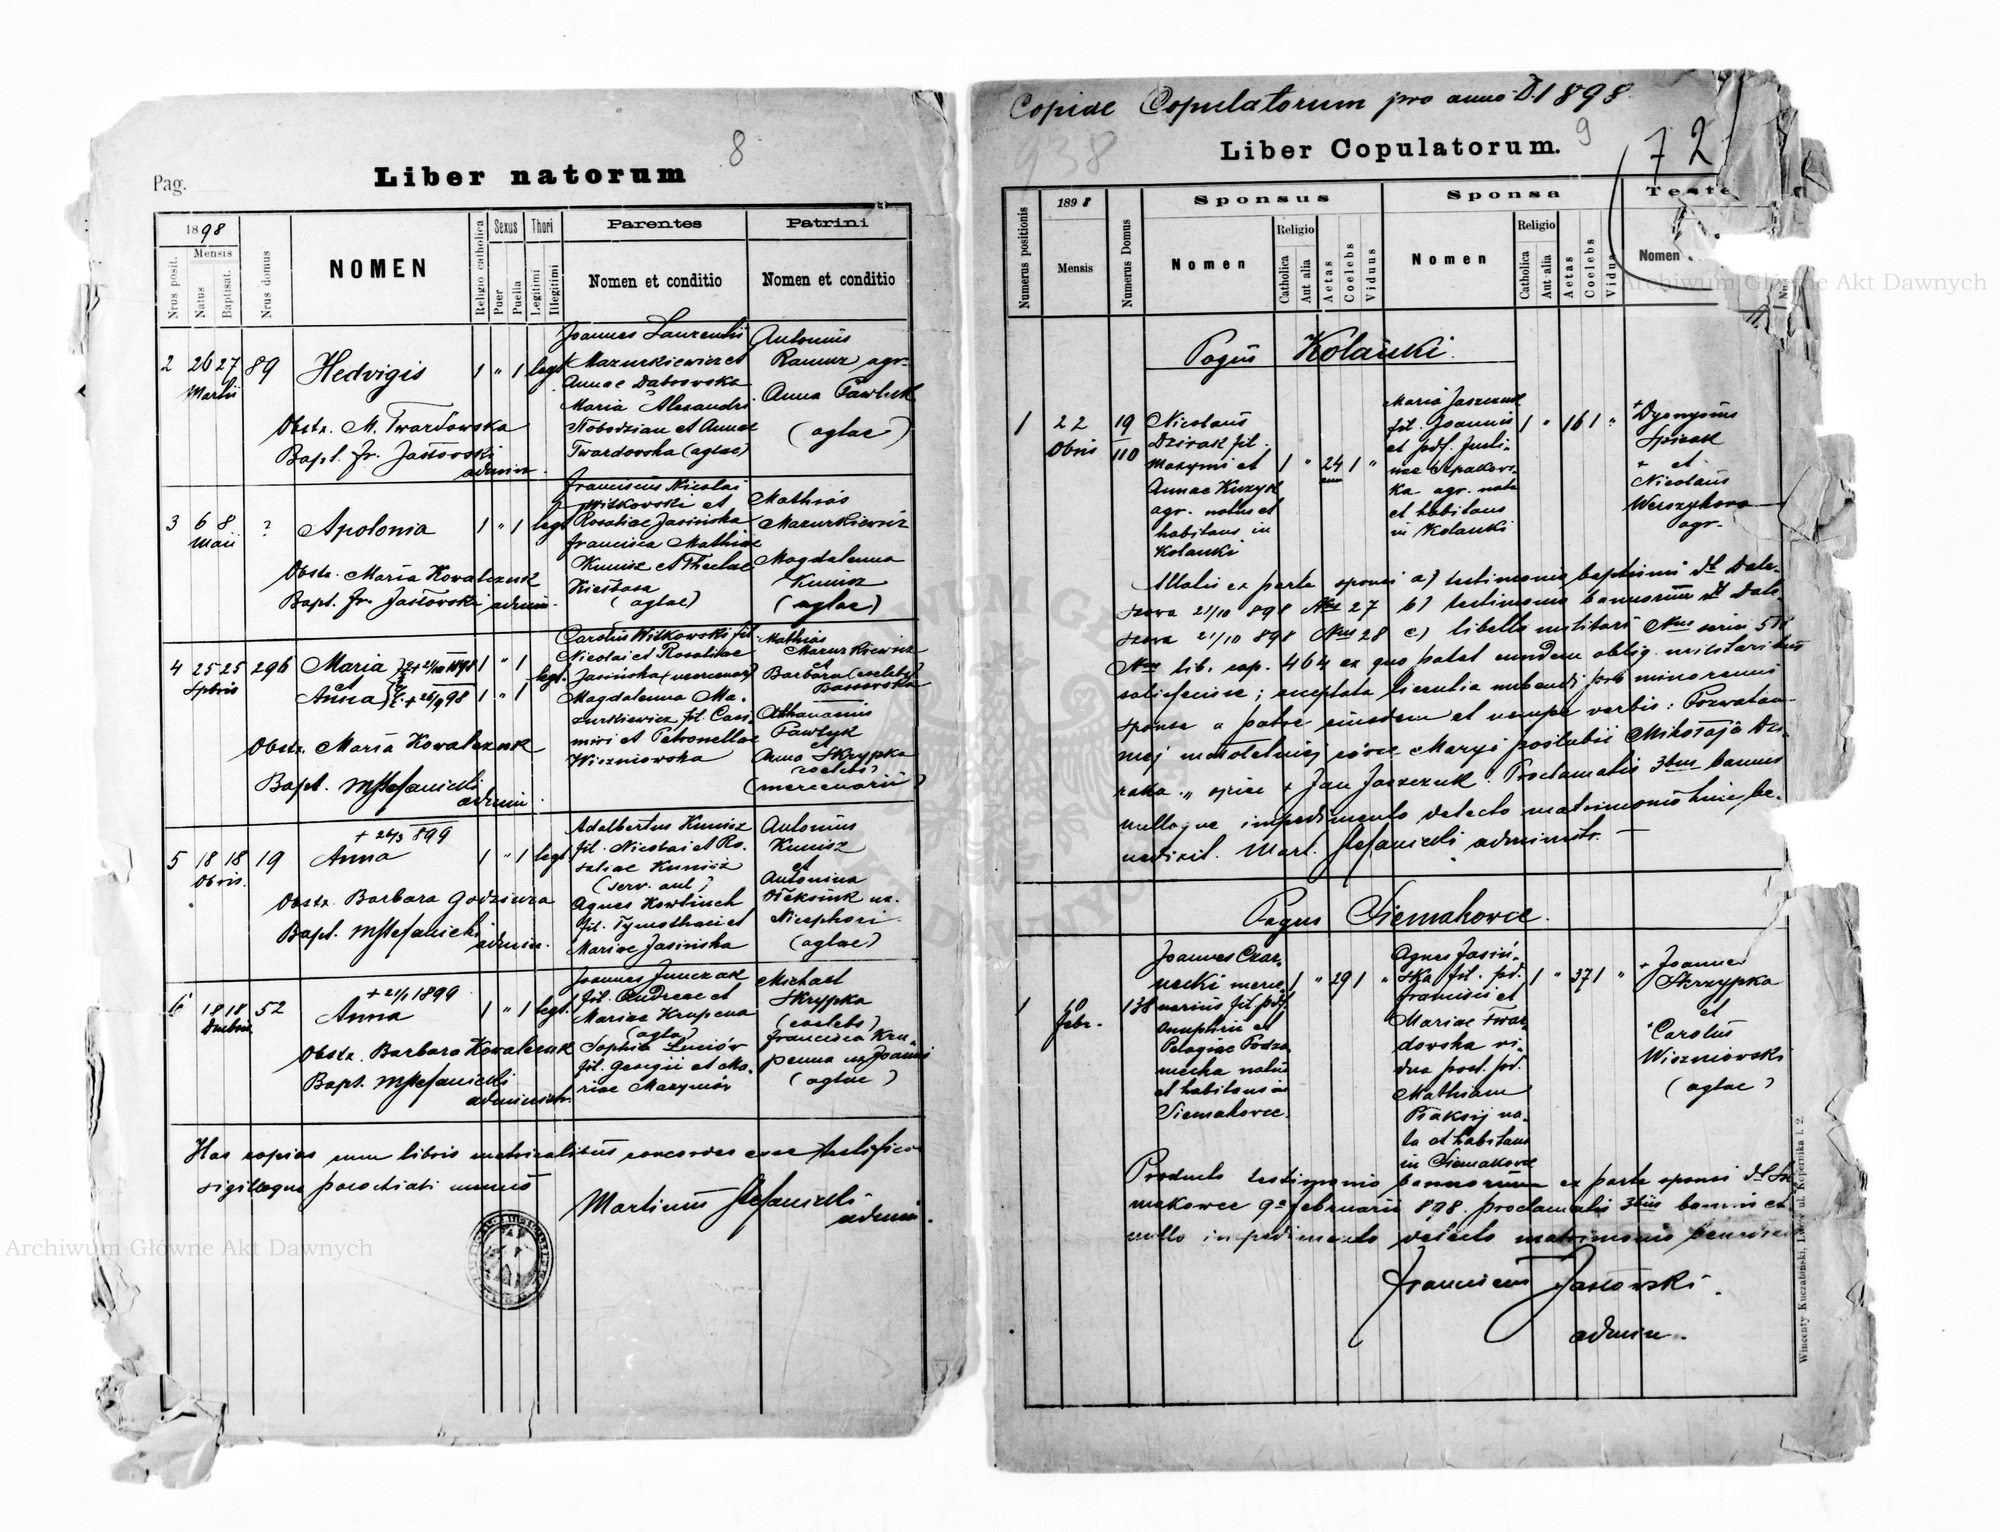 8
Pag.
Liber natorum
1898
Mensis
Nrus posit.
Natus
Baptisat.
Nrus domus
NOMEN
Religio catholica
Sexus
Puer
Puella
Thori
Legitimi
Illegitimi
Parentes
Nomen et conditio
Patrini
Nomen et conditio
2 26 27 89 Hedvigis 1 " 1 legt
Martii
Obstr. M. Twardowska
Bapt. fr. Jasłovski
admin.
Joannes Laurentii
Mazurkiewicz et
Annae Dabrovska
Maria Alexandri
et Annae
Twardovska (aglae)
Antonius
agr.
Anna Pawluk
(aglae)
3 6 8 ? Apolonia 1 " 1 legt
Maii
Obstr. Maria Kovalczuk
Bapt. fr. Jasłovski admin.
Franciscus Nicolai
Witkovski et
Rosaliae Jasińska
Francisca Mathiae
Kunisz et Theclae
(aglae)
Mathias
Mazurkiewicz
Magdalenna
Kunisz
(aglae)
4 25 25 296 Maria 1 " 1
Sptbris et legt.
Anna 1 " 1
Obstr. Maria Kovalczuk
Bapt. MStefanicki
admin.
Carolus Witkowski fil.
Nicolai et Rosaliae
Jasińska (mercenar)
Magdalenna Ma-
zurkiewicz fil. Casi-
miri et Petronellae
Wiszniowska
Mathias
Mazurkiewicz
et
Barbara (coelebs)
Athanasius
Pawłyk
et
Anna Skrypka
(coelebs)
(mercenarii)
+ 26/3 899
5 18 18 19 Anna 1 " 1 legt
Obris.
Obstr. Barbara Godziura
Bapt. MStefanicki
admin.
Adalbertus Kunisz
fil. Nicolai et Ro-
saliae Kunisz
(serv. aul.)
Agnes
fil. Tymothaei et
Mariae Jasińska
Antonius
Kunisz
et
Antonina
Ołeksiuk ux.
Nicephori
(aglae)
+ 21/1 1899
6 18 18 52 Anna 1 " 1 legt.
Obstr. Barbara Kovalczuk
Bapt. MStefanicki
administr.
Joannes Junczak
fil. Andreae et
Mariae Krupena
(aglae)
Sophia
fil. Georgii et Ma-
riae Marymów
Michael
Skrypka
(coelebs)
Francisca Kru-
penna ux Joannis
(aglae)
Has copias cum libris metricalibus concordes esse testificor
sigilloque parochiali munio
Martinus Stefanicki
admin.
Copiae Copulatorum pro anno D. 1898.
938
9
72
Liber Copulatorum.
Numerus positionis
1898
Mensis
Numerus Domus
Sponsus
Nomen
Religio
Catholica
Aut alia
Aetas
Coelebs
Viduus
Sponsa
Nomen
Religio
Catholica
Aut alia
Aetas
Coelebs
Vidua
Teste
Nomen
Pagus Kolanki.
1 22 19
Obris 110
Nicolaus
Dzirak fil.
Maxymi et
Annae Kuzyk
agr. natus et
habitans in
Kolanki
1 " 24 1 "
Maria Jaszczuk
fil. Joannis
et pdf. Justi-
nae Szpakovs-
ka agr. nata
et habitans
in Kolanki
1 " 16 1 "
+ Dyonysius
Spirak
+ et
Nicolaus
agr.
Allatis ex parte sponsi a) testimonio baptismi dt Dale-
szova 21/10 898 Nrus 27 b) testimonio bannorum dt Dale-
szova 21/10 898 Nrus 28 c) libello militari
lib. cap. 464 ex quo patet eundem oblig. militaribus
satisfecisse; licentia nubendi pro minorenni
sponsa a patre ejusdem et nempe verbis: Pozwalam
mej małoletniej córce Maryi poślubić Mikołaja Dzi-
raka " + Jan Jaszczuk. Proclamatis 3bus bannis
nulloque impedimento detecto matrimonio huic be-
nedixit. Mart. Stefanicki administr.
Pagus Siemakovce.
1 10 138
febr.
Joannes Czar-
necki merce-
narius fil. pdf.
Onuphrii et
Pelagiae
natus
et habitans in
Siemakovce.
1 " 29 1 "
Agnes Jasiń-
ska fil. pd.
Francisci et
Mariae Twar-
dovska vi-
dua post. pd.
Mathiam
na-
ta et habitans
in Siemakovce
1 " 37 1 "
+ Joannes
Skrzypka
et
+ Carolus
Wiszniovski
(aglae)
Producto testimonio bannorum ex parte sponsi dt Sie-
makovce 9a februarii 898. proclamatis 3bus bannis et
nullo impedimento detecto matrimonio
Franciscus Jasłovski.
admin.
Wincenty Kuczabiński, Lwów ul. Kopernika l. 2.
Archiwum Główne Akt Dawnych
Archiwum Główne Akt Dawnych